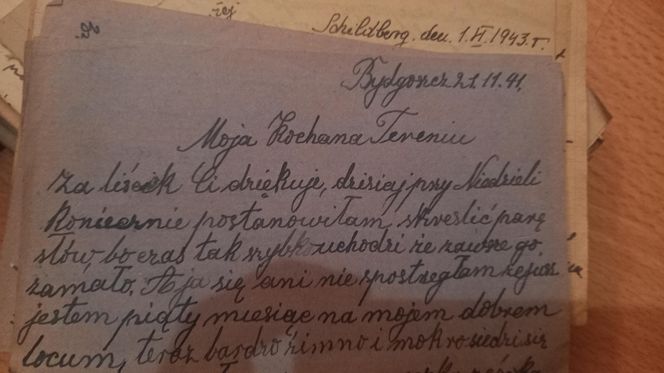 Schildberg. den. 1.VI.1943.r.
Bydgoszcz 21.11.41.
Moja Kochana Tereniu
Za liścik Ci dziękuje, dzisiaj przy Niedzieli
koniecznie postanowiłam, skreslić parę
słów, bo czas tak szybko uchodzi że zawsze go
zamało. A ja się ani nie spostrzegłam że już
jestem piąty miesiąc na mojem dobrem
locum, teraz bardzo zimno i mokro siedzi się